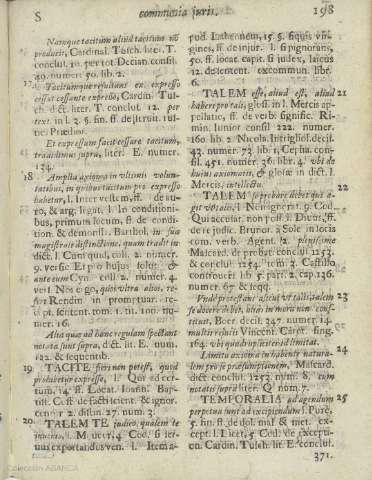 S communia juris. 198
Namque tacitum aliud tacitum nõ
producit, Cardinal. Tusch. liter. T.
conclus. 10. per tot. Decian. consil.
40. numer. 50. lib. 2.
17 Tacitumque resultans ex expresso
cessat cessante expresso, Cardin. Tus-
ch. dict. liter. T. conclus. 12. per
text. in l. 3. §. fin. ff. de
Et expressum facit cessare tacitum,
tradidimus supra, liter. E. numer.
134.
18 Amplia axioma in ultimis volun-
tatibus, in quibus tacitum pro expresso
habetur, l. Inter vestem, ff. de au-
ro, & arg. legat. l. In conditioni-
bus, primum locum, ff. de condi-
tion. & demonst. Barthol. in sua
magistrali distinctione, quam tradit in
dict. l. Cum quid, coll. 2. numer.
9. vers. Et pro hujus solut. &
ante eum Cyn. coll. 2. numer. 4.
vers. Nos ergo, quin vitra alios, re-
fert Rendin in promptuar. re-
cept. sentent. tom. 1. n. 100. nu-
mer. 16.
Alia quæ ad hanc regulam spectant
notata sunt supra, dict. lit. E. num.
132. & sequentib.
19 TACITE fieri non potest, quod
produbetur expresse, l. Qui ad cer-
tum, 14. ff. Locat. Ioseph. Bap-
tist. C. ff. de facti scient. & ignor.
cent. 1. 2. distin. 27. num. 3.
20 TALEM TE judico, qualem te
invenio, l. Mulier, 4. Cod. si ser-
vus exportandus ven. l. Item a-
pud Labeonem, 15. §. siquis vir-
gines, ff. de injur. l. si pignorans,
50. ff. locat. capit. si judex, laicus
12. de sentent. excommun. lib.
6.
TALEM esse, aliud est, aliud 21
haberi pro tali, gloss. in l. Mercis ap-
pellatio, ff. de verb. signific. Ri-
min. Iunior consil. 222. numer.
160. lib. 2. Nicol. Intrigliol. decis.
42. numer. 73. lib. 1. Cepha. con-
sil. 451. numer. 36. libr. 4. vbi de
huius axiomatis, & glossæ in dict. l.
Mercis, intellectu. 22
TALEM se probare debet qui a-
git vt talis, l. Neque 9. Cod.
Qui accusar. non poss. l. Divus, ff.
de re judic. Brunor. à Sole in locis
com. verb. Agent. 12. plenissime
Mascard. de probat. conclus. 1253.
& conclus. 1254. tom. 3. Castillo,
controuers. lib. 5. part. 2. cap. 136.
numer. 67. & seqq.
Vnde protestans aliquid vt talis, talem 23
se docere debet, alias in mora non cons-
tituit, Boer. decis. 347. numer. 14.
multis relatis Vincent. Carot. sing.
164. vbi quadrupliciter id limitat.
Limita axioma in habente natura- 24
lem pro se præsumptionem, Mascard.
dict. conclus. 1253. num. 8. cum
notatis supra liter. Q. num. 7.
TEMPORALIA ad agendum 25
perpetua sunt ad excipiendum l. Purè,
5. §. fin. ff. de dol. mal. & met. ex-
cept. l. Licet, 5. Cod. de excepti-
on. Cardin. Tusch. lit. E. conclus.
371.
Colección ABANCA